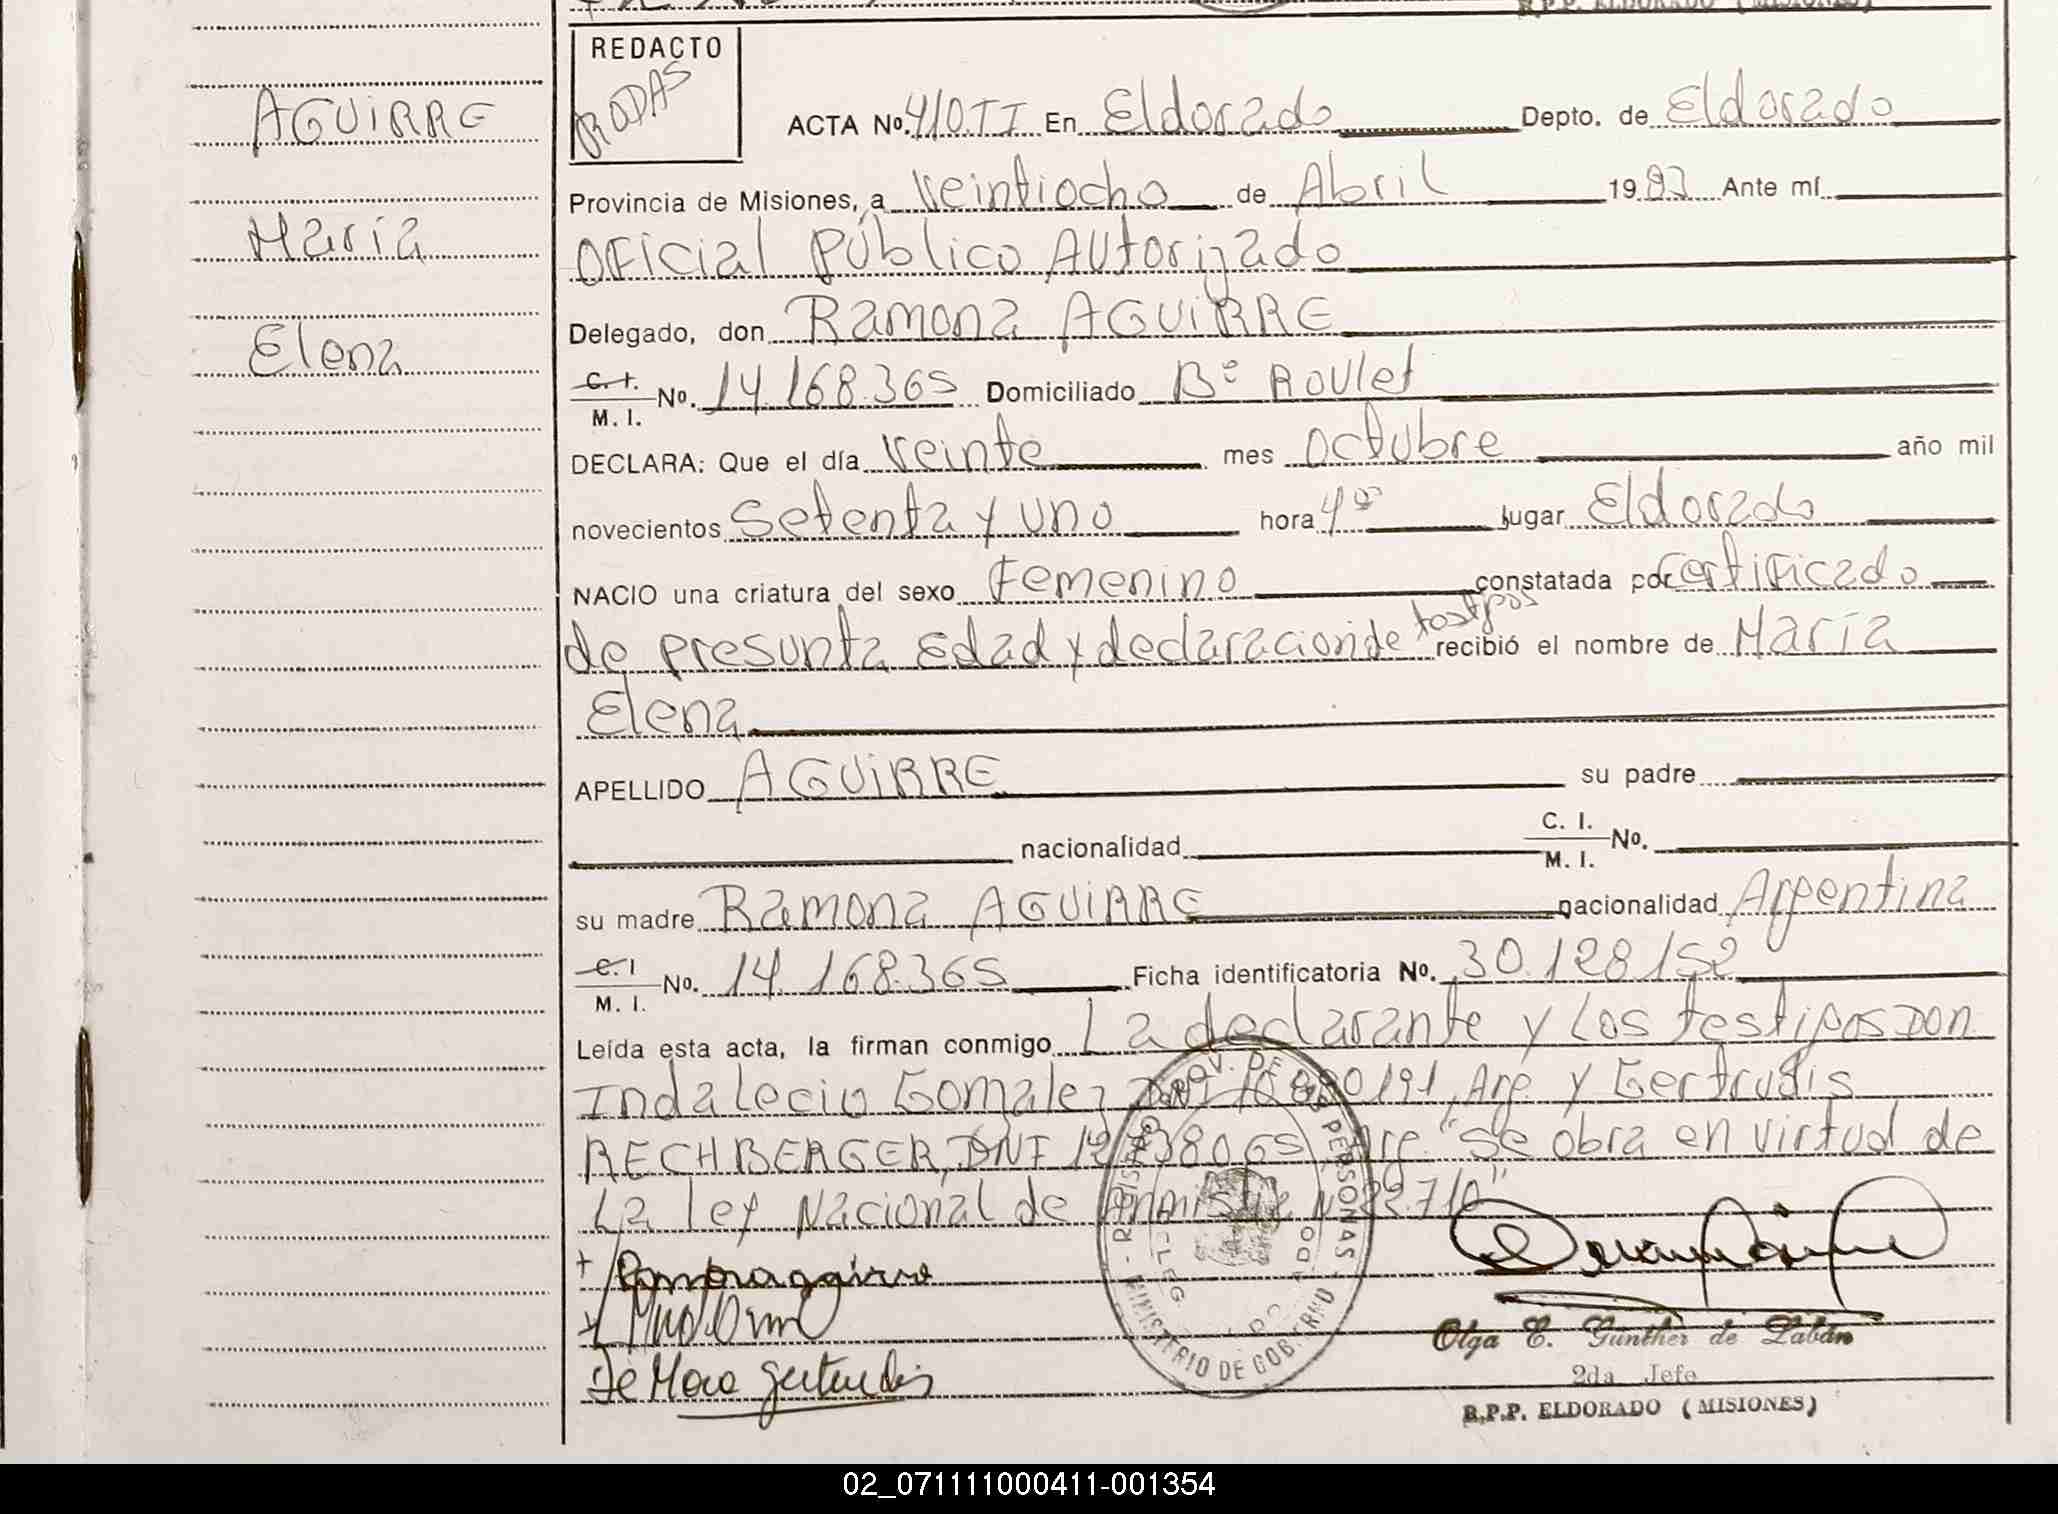 R.P.P. ELDORADO (MISIONES)
REDACTO
RODAS
AGUIRRE
María
Elena
ACTA No. 410.TI En Eldorado Depto. de Eldorado
Provincia de Misiones, a Veintiocho de Abril 1983 Ante mí
Oficial Público Autorizado
Delegado, don Ramona AGUIRRE
C. I. M. I. No. 14.168.365 Domiciliado Bº Roulet
DECLARA: Que el día Veinte mes octubre año mil
novecientos Setenta y uno hora 4 lugar Eldorado
NACIO una criatura del sexo Femenino constatada por Certificado
de presunta edad y declaración de testigos recibió el nombre de María
Elena
APELLIDO AGUIRRE su padre
nacionalidad C. I. M. I. No.
su madre Ramona AGUIRRE nacionalidad Argentina
C. I M. I. No. 14.168.365 Ficha identificatoria No. 30.128.152
Leída esta acta, la firman conmigo La declarante y Los testigos Don
Indalecio Gomalez DNI 191, Arg. y Gertrudis
RECHBERGER, DNI Arg. "Se obra en virtud de
La ley Nacional de Amnistia Nº 22.710"
De Mora Gertrudis
REGISTRO PROV. DE LAS PERSONAS
MINISTERIO DE GOBIERNO
Olga E. Günther de Labán
2da Jefe
R.P.P. ELDORADO (MISIONES)
02_071111000411-001354